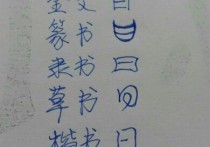 金文
篆书
隶书 日
草书
楷书 日